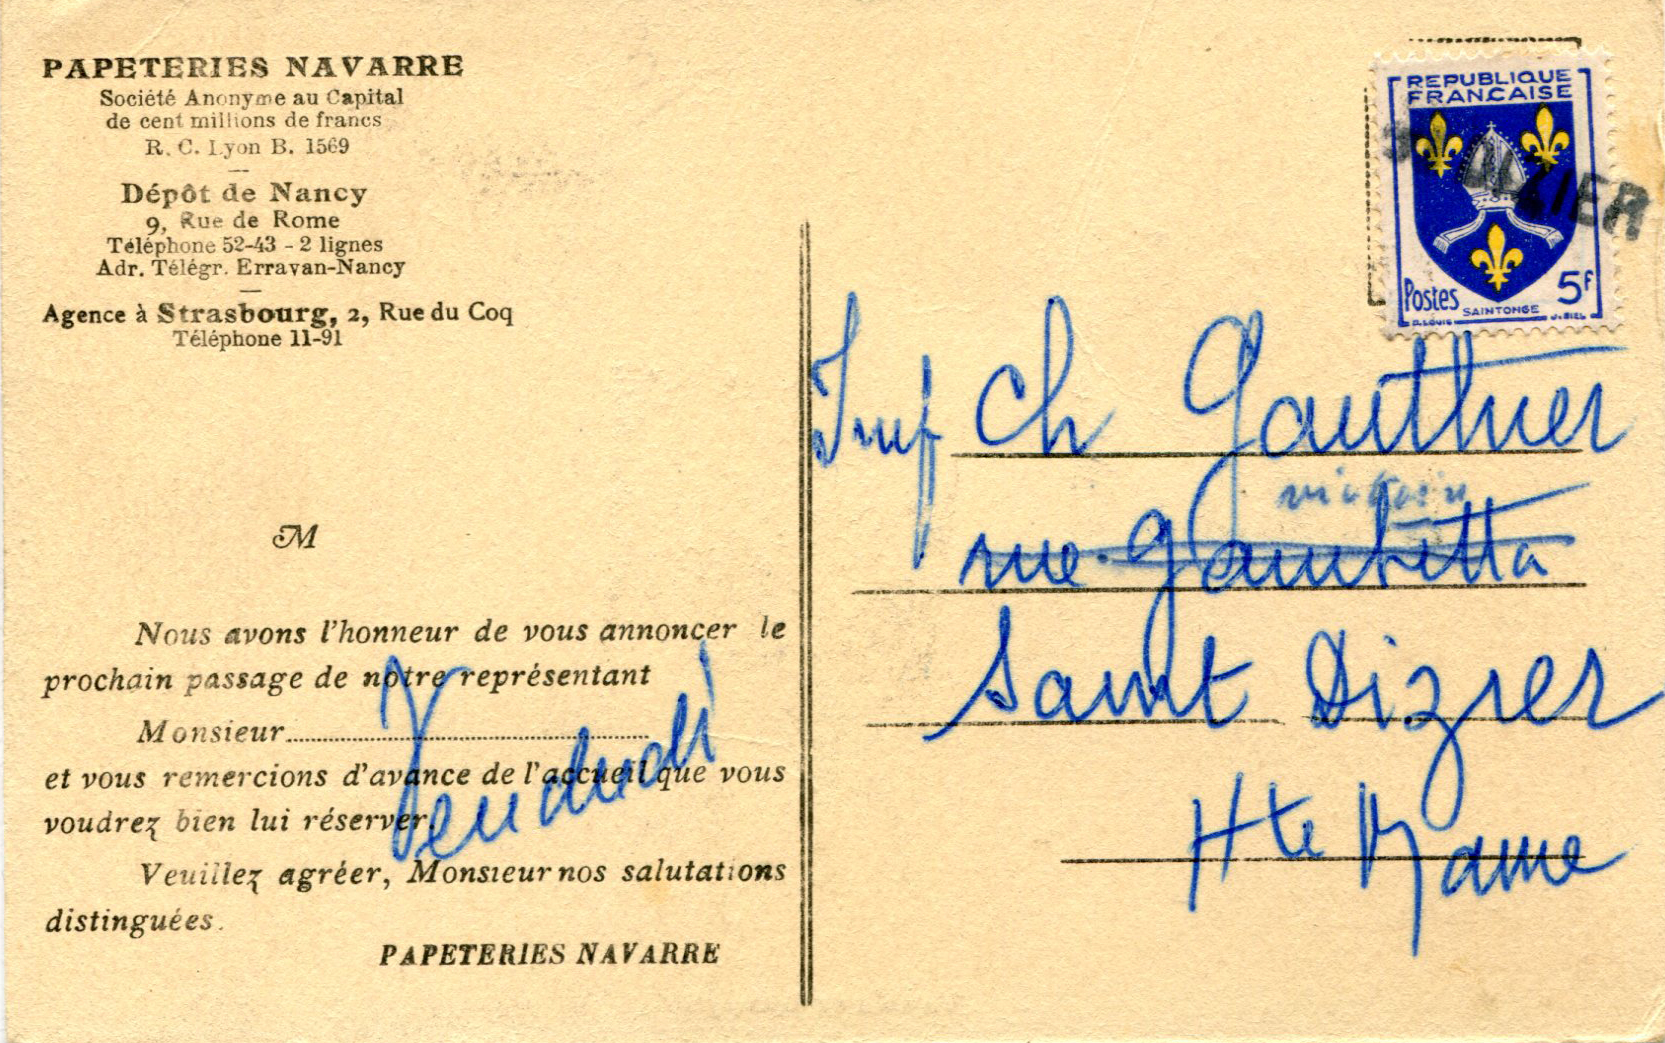 PAPETERIES NAVARRE
Société Anonyme au Capital
de cent millions de francs
R. C. Lyon B. 1569
Dépôt de Nancy
9, Rue de Rome
Téléphone 52-43 - 2 lignes
Adr. Télégr. Erravan-Nancy
Agence à Strasbourg, 2, Rue du Coq
Téléphone 11-91
M
Nous avons l'honneur de vous annoncer le
prochain passage de notre représentant
Monsieur
et vous remercions d'avance de l'accueil que vous
voudrez bien lui réserver.
Vendredi
Veuillez agréer, Monsieur nos salutations
distinguées.
PAPETERIES NAVARRE
REPUBLIQUE
FRANCAISE
DIZIER
Postes
SAINTONGE
5F
R. LOUIS
J. BIEL
Ch Gauthier
rue Gambetta
Saint Dizier
Hte Marne